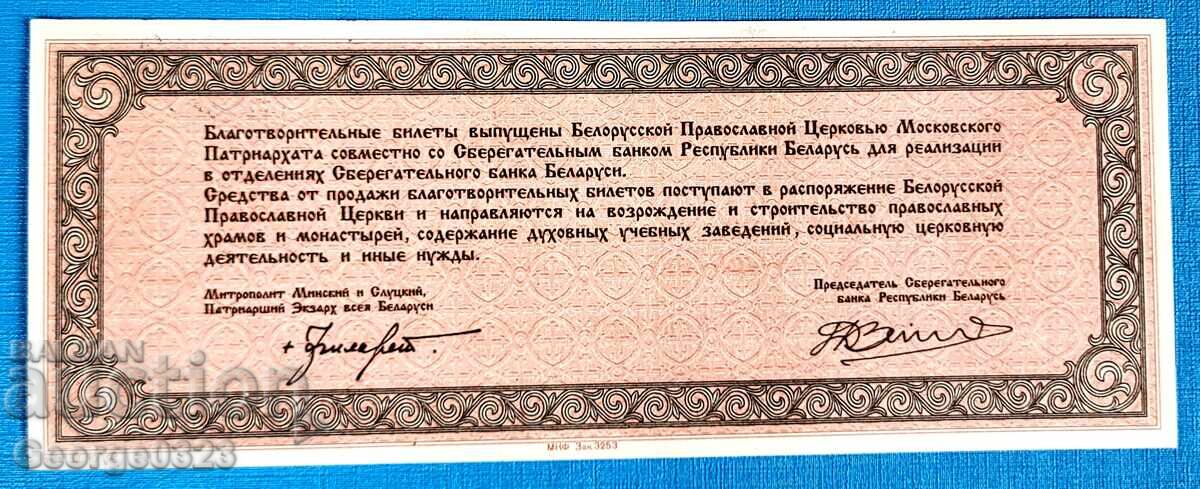 Благотворительные билеты выпущены Белорусской Православной Церковью Московского
Патриархата совместно со Сберегательным банком Республики Беларусь для реализации
в отделениях Сберегательного банка Беларуси.
Средства от продажи благотворительных билетов поступают в распоряжение Белорусской
Православной Церкви и направляются на возрождение и строительство православных
храмов и монастырей, содержание духовных учебных заведений, социальную церковную
деятельность и иные нужды.
Митрополит Минский и Слуцкий,
Патриарший Экзарх всея Беларуси
Председатель Сберегательного
банка Республики Беларусь
+ Филарет.
МНФ Зак. 3253
BALKAN
auction
George0323